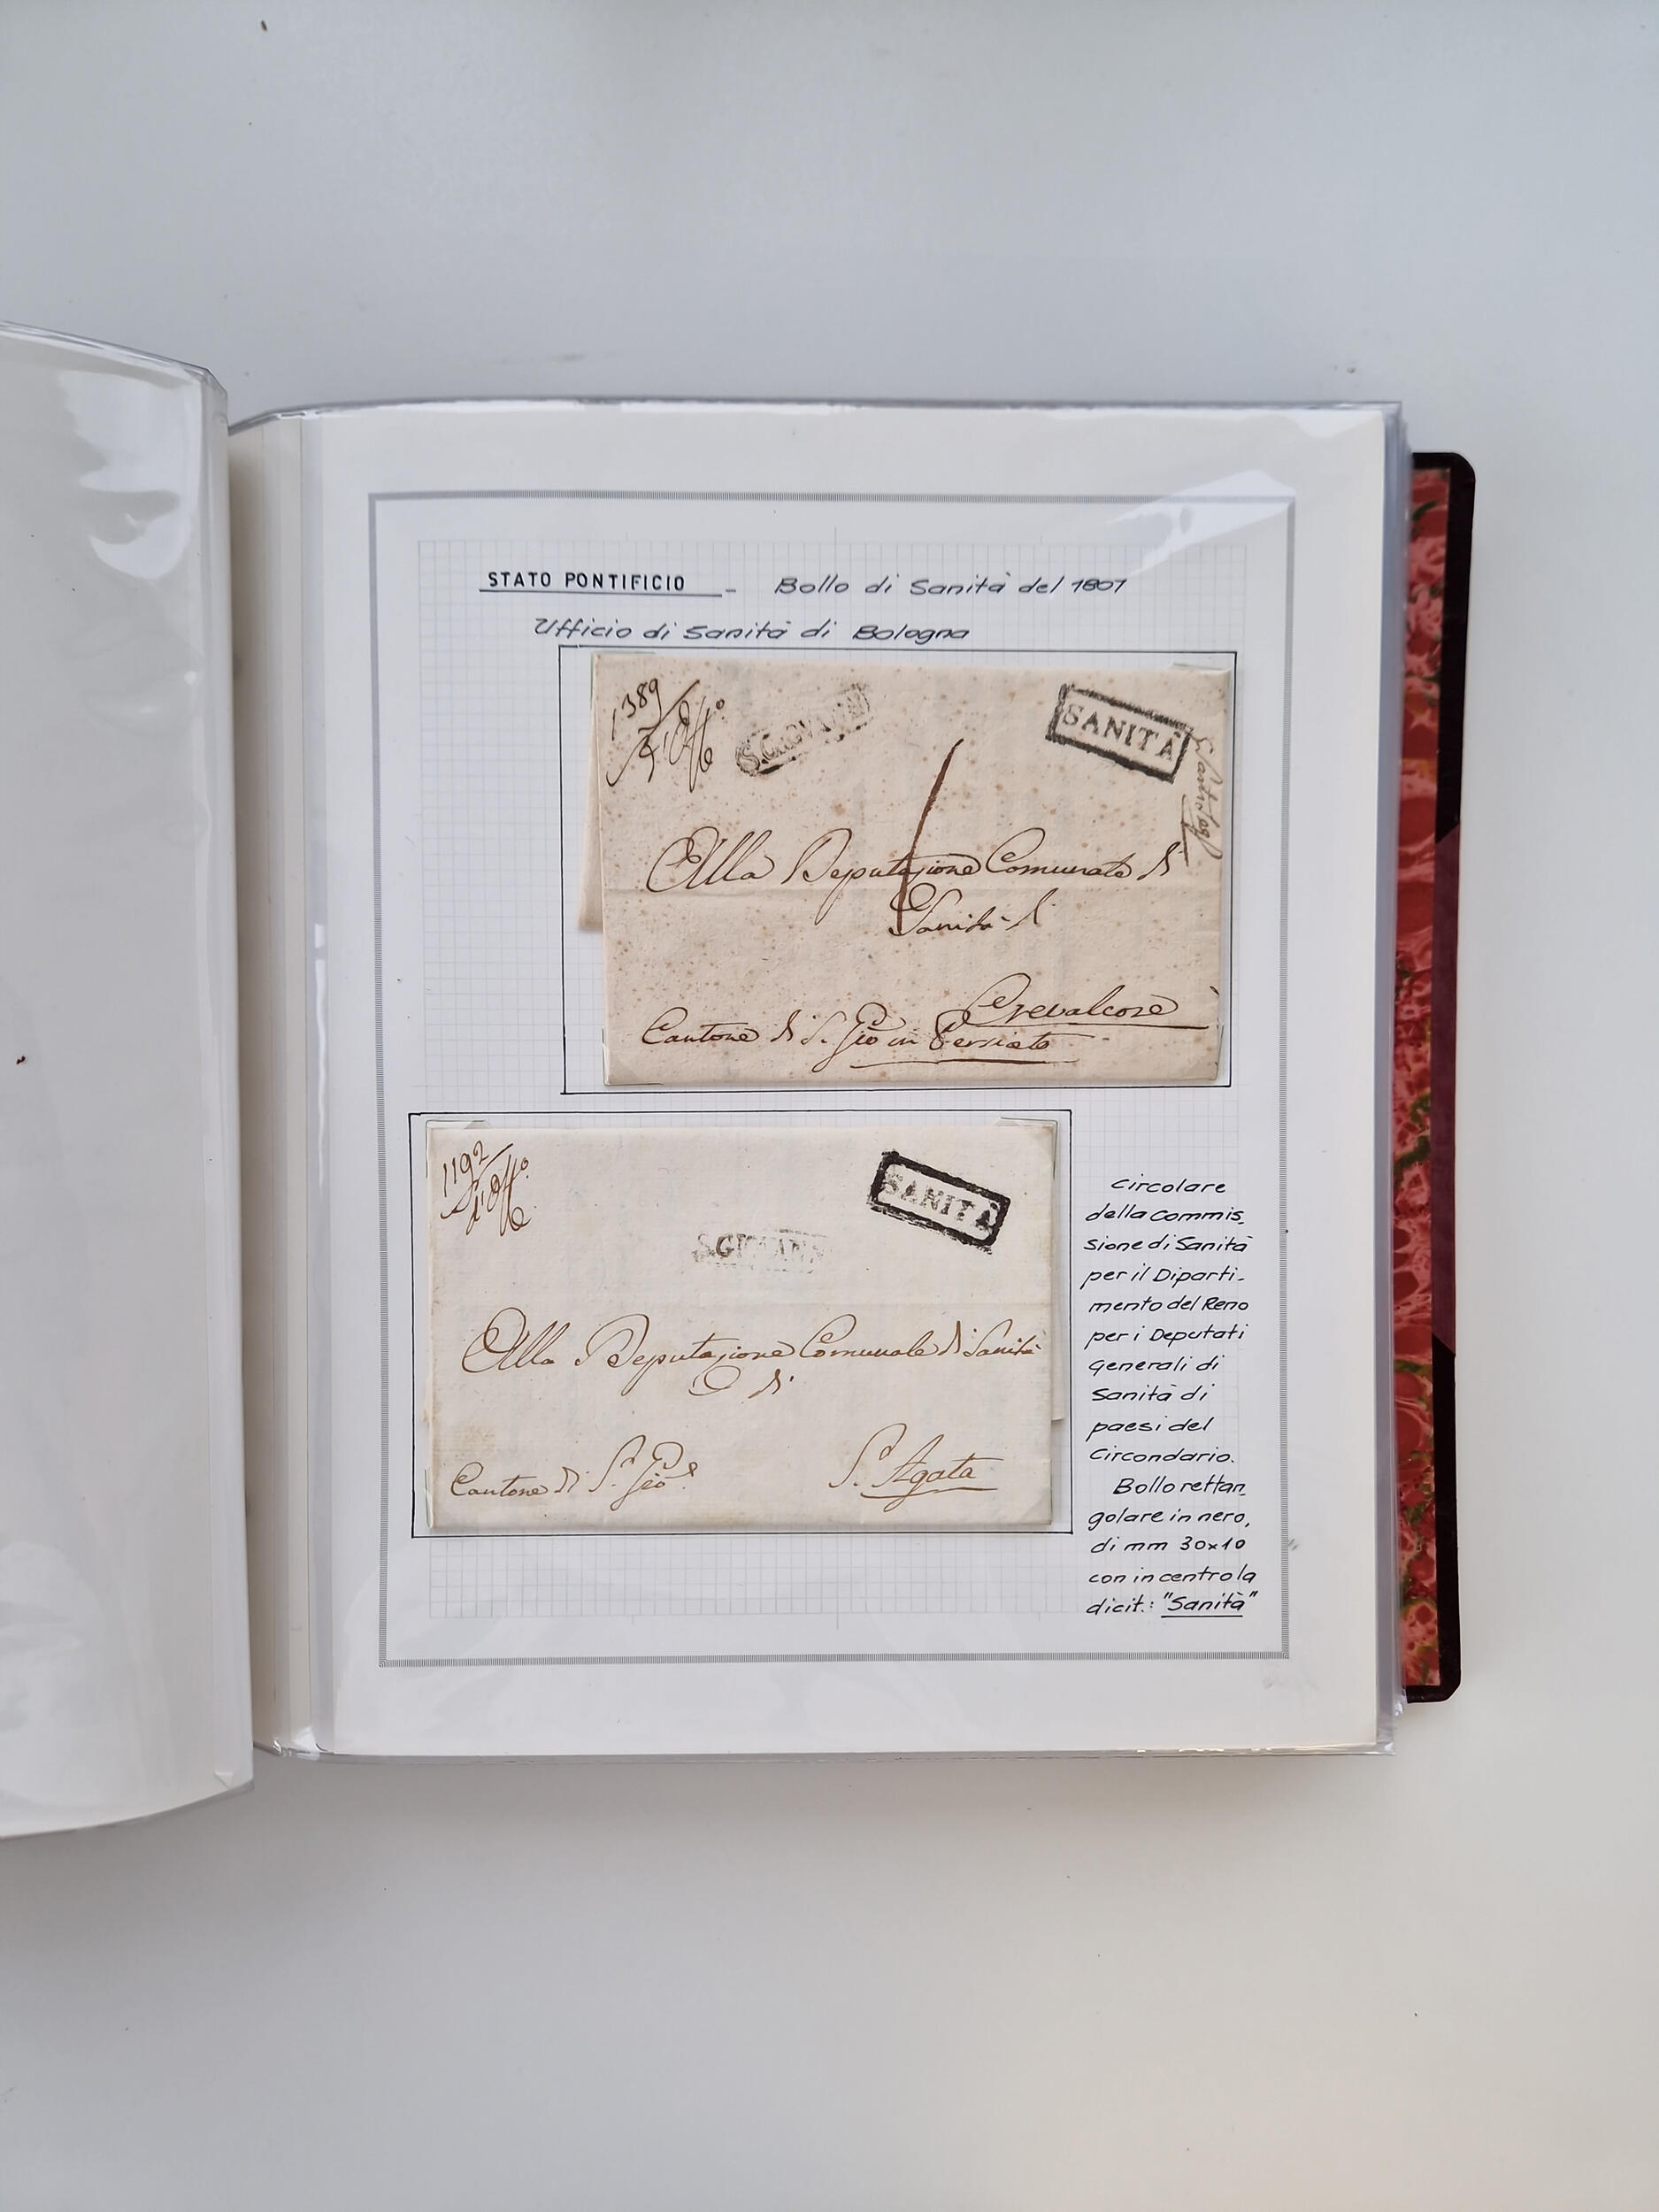 STATO PONTIFICIO - Bollo di Sanità del 1807
Ufficio di Sanità di Bologna
1389
S. GIOVANNI
SANITÀ
Alla Deputazione Comunale di
Sanità di
Crevalcore
Cantone di S. Gio in Persiceto
1192
SANITÀ
S. GIOVANNI
Alla Deputazione Comunale di Sanità
di
Cantone di S. Gio
S. Agata
Circolare
della Commis_
sione di Sanità
per il Diparti-
mento del Reno
per i Deputati
Generali di
Sanità di
paesi del
Circondario.
Bollo rettan_
golare in nero,
di mm 30x10
con in centro la
dicit.: "Sanità"